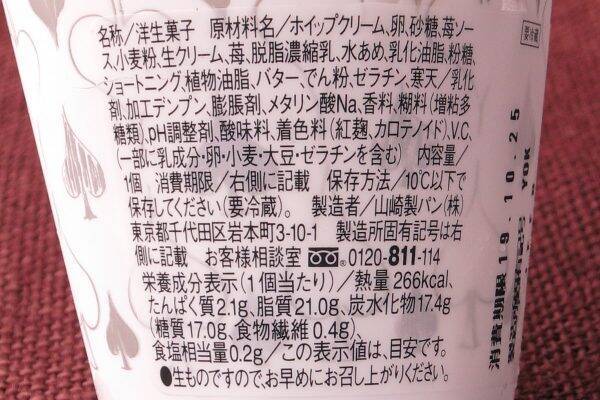 名称/洋生菓子　原材料名/ホイップクリーム、卵、砂糖、苺ソー
ス、小麦粉、生クリーム、苺、脱脂濃縮乳、水あめ、乳化油脂、粉糖、
ショートニング、植物油脂、バター、でん粉、ゼラチン、寒天/乳化
剤、加工デンプン、膨脹剤、メタリン酸Na、香料、糊料(増粘多
糖類)、pH調整剤、酸味料、着色料(紅麹、カロテノイド)、V.C、
(一部に乳成分・卵・小麦・大豆・ゼラチンを含む)　内容量/
1個　消費期限/右側に記載　保存方法/10℃以下で
保存してください(要冷蔵)。　製造者/山崎製パン(株)
東京都千代田区岩本町3-10-1　製造所固有記号は右
側に記載　お客様相談室 0120-811-114
栄養成分表示(1個当たり)/熱量 266kcal、
たんぱく質2.1g、脂質21.0g、炭水化物17.4g
(糖質17.0g、食物繊維 0.4g)、
食塩相当量0.2g/この表示値は、目安です。
●生ものですので、お早めにお召し上がりください。
要冷蔵
消費期限19.10.25
YOK